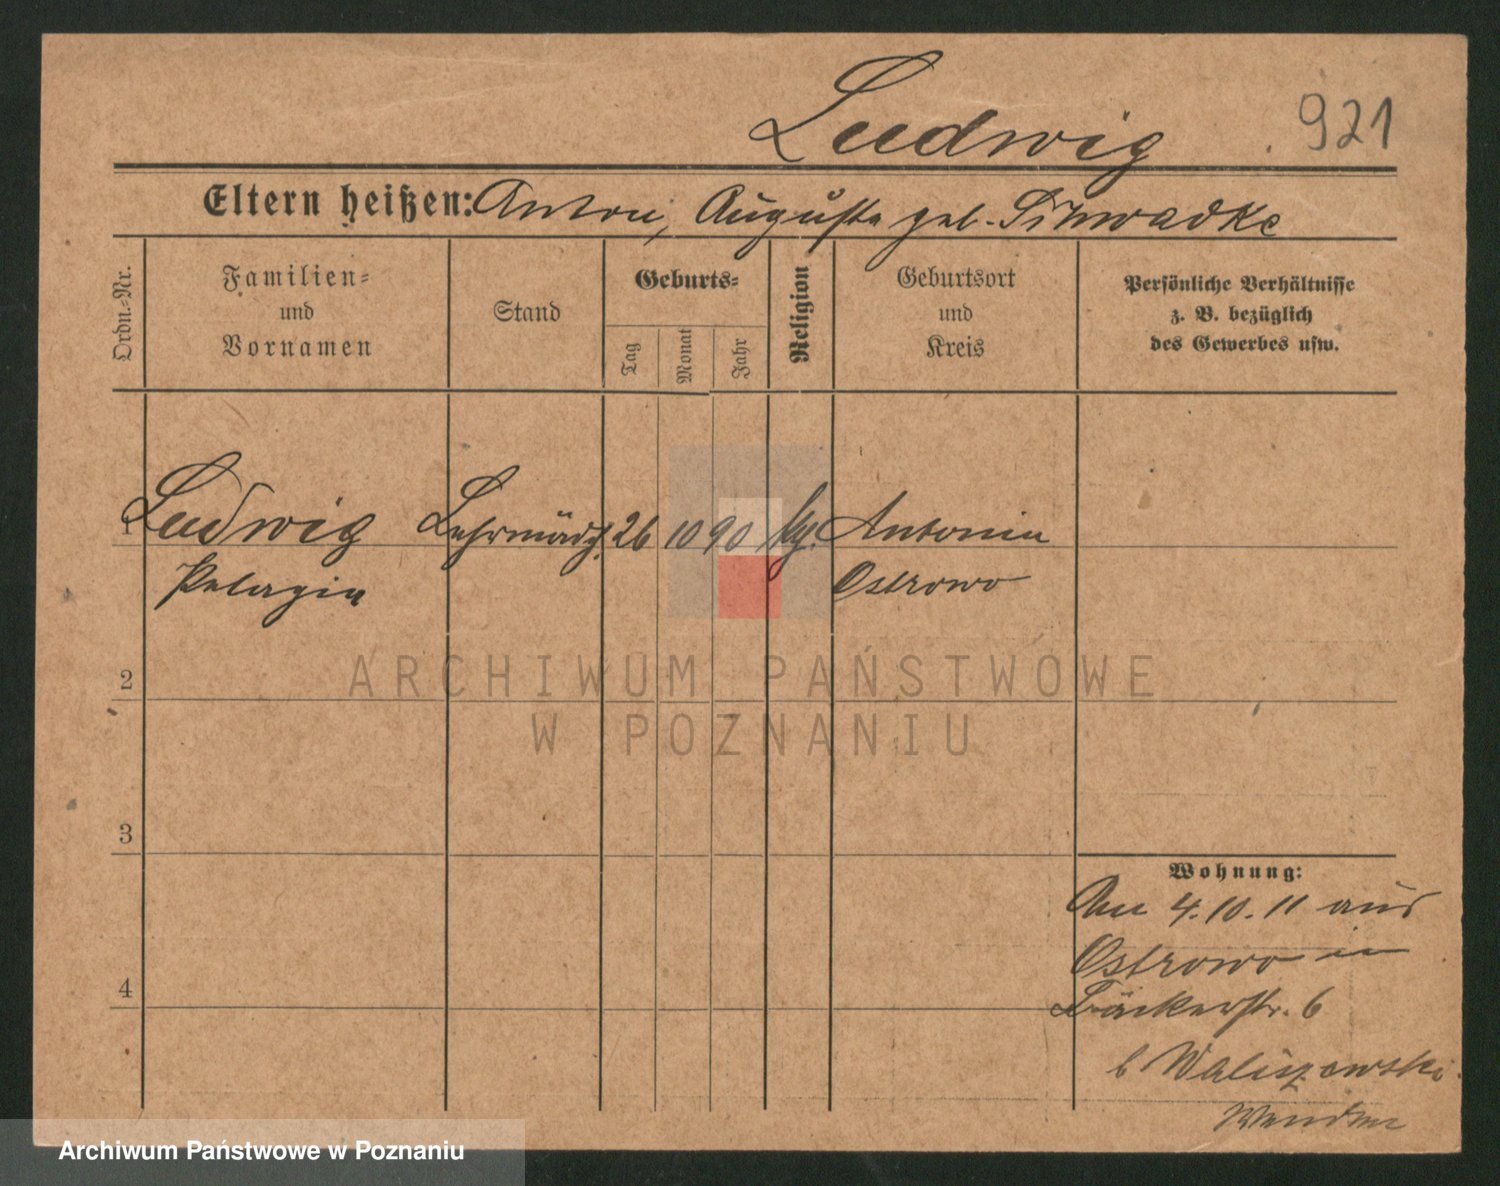 Ludwig
921
Eltern heißen: Anton, Auguste geb.
Ordn.-Nr.
Familien-
und
Vornamen
Stand
Geburts-
Tag
Monat
Jahr
Religion
Geburtsort
und
Kreis
Persönliche Verhältnisse
z. B. bezüglich
des Gewerbes usw.
1
Ludwig Lehrmädch. 26 10 90 kg. Antonin
Pelagia Ostrowo
2
3
4
Wohnung:
Am 4.10.11 aus
Ostrowo in
Bäckerstr. 6
b Waliszewski
ARCHIWUM PAŃSTWOWE
W POZNANIU
Archiwum Państwowe w Poznaniu